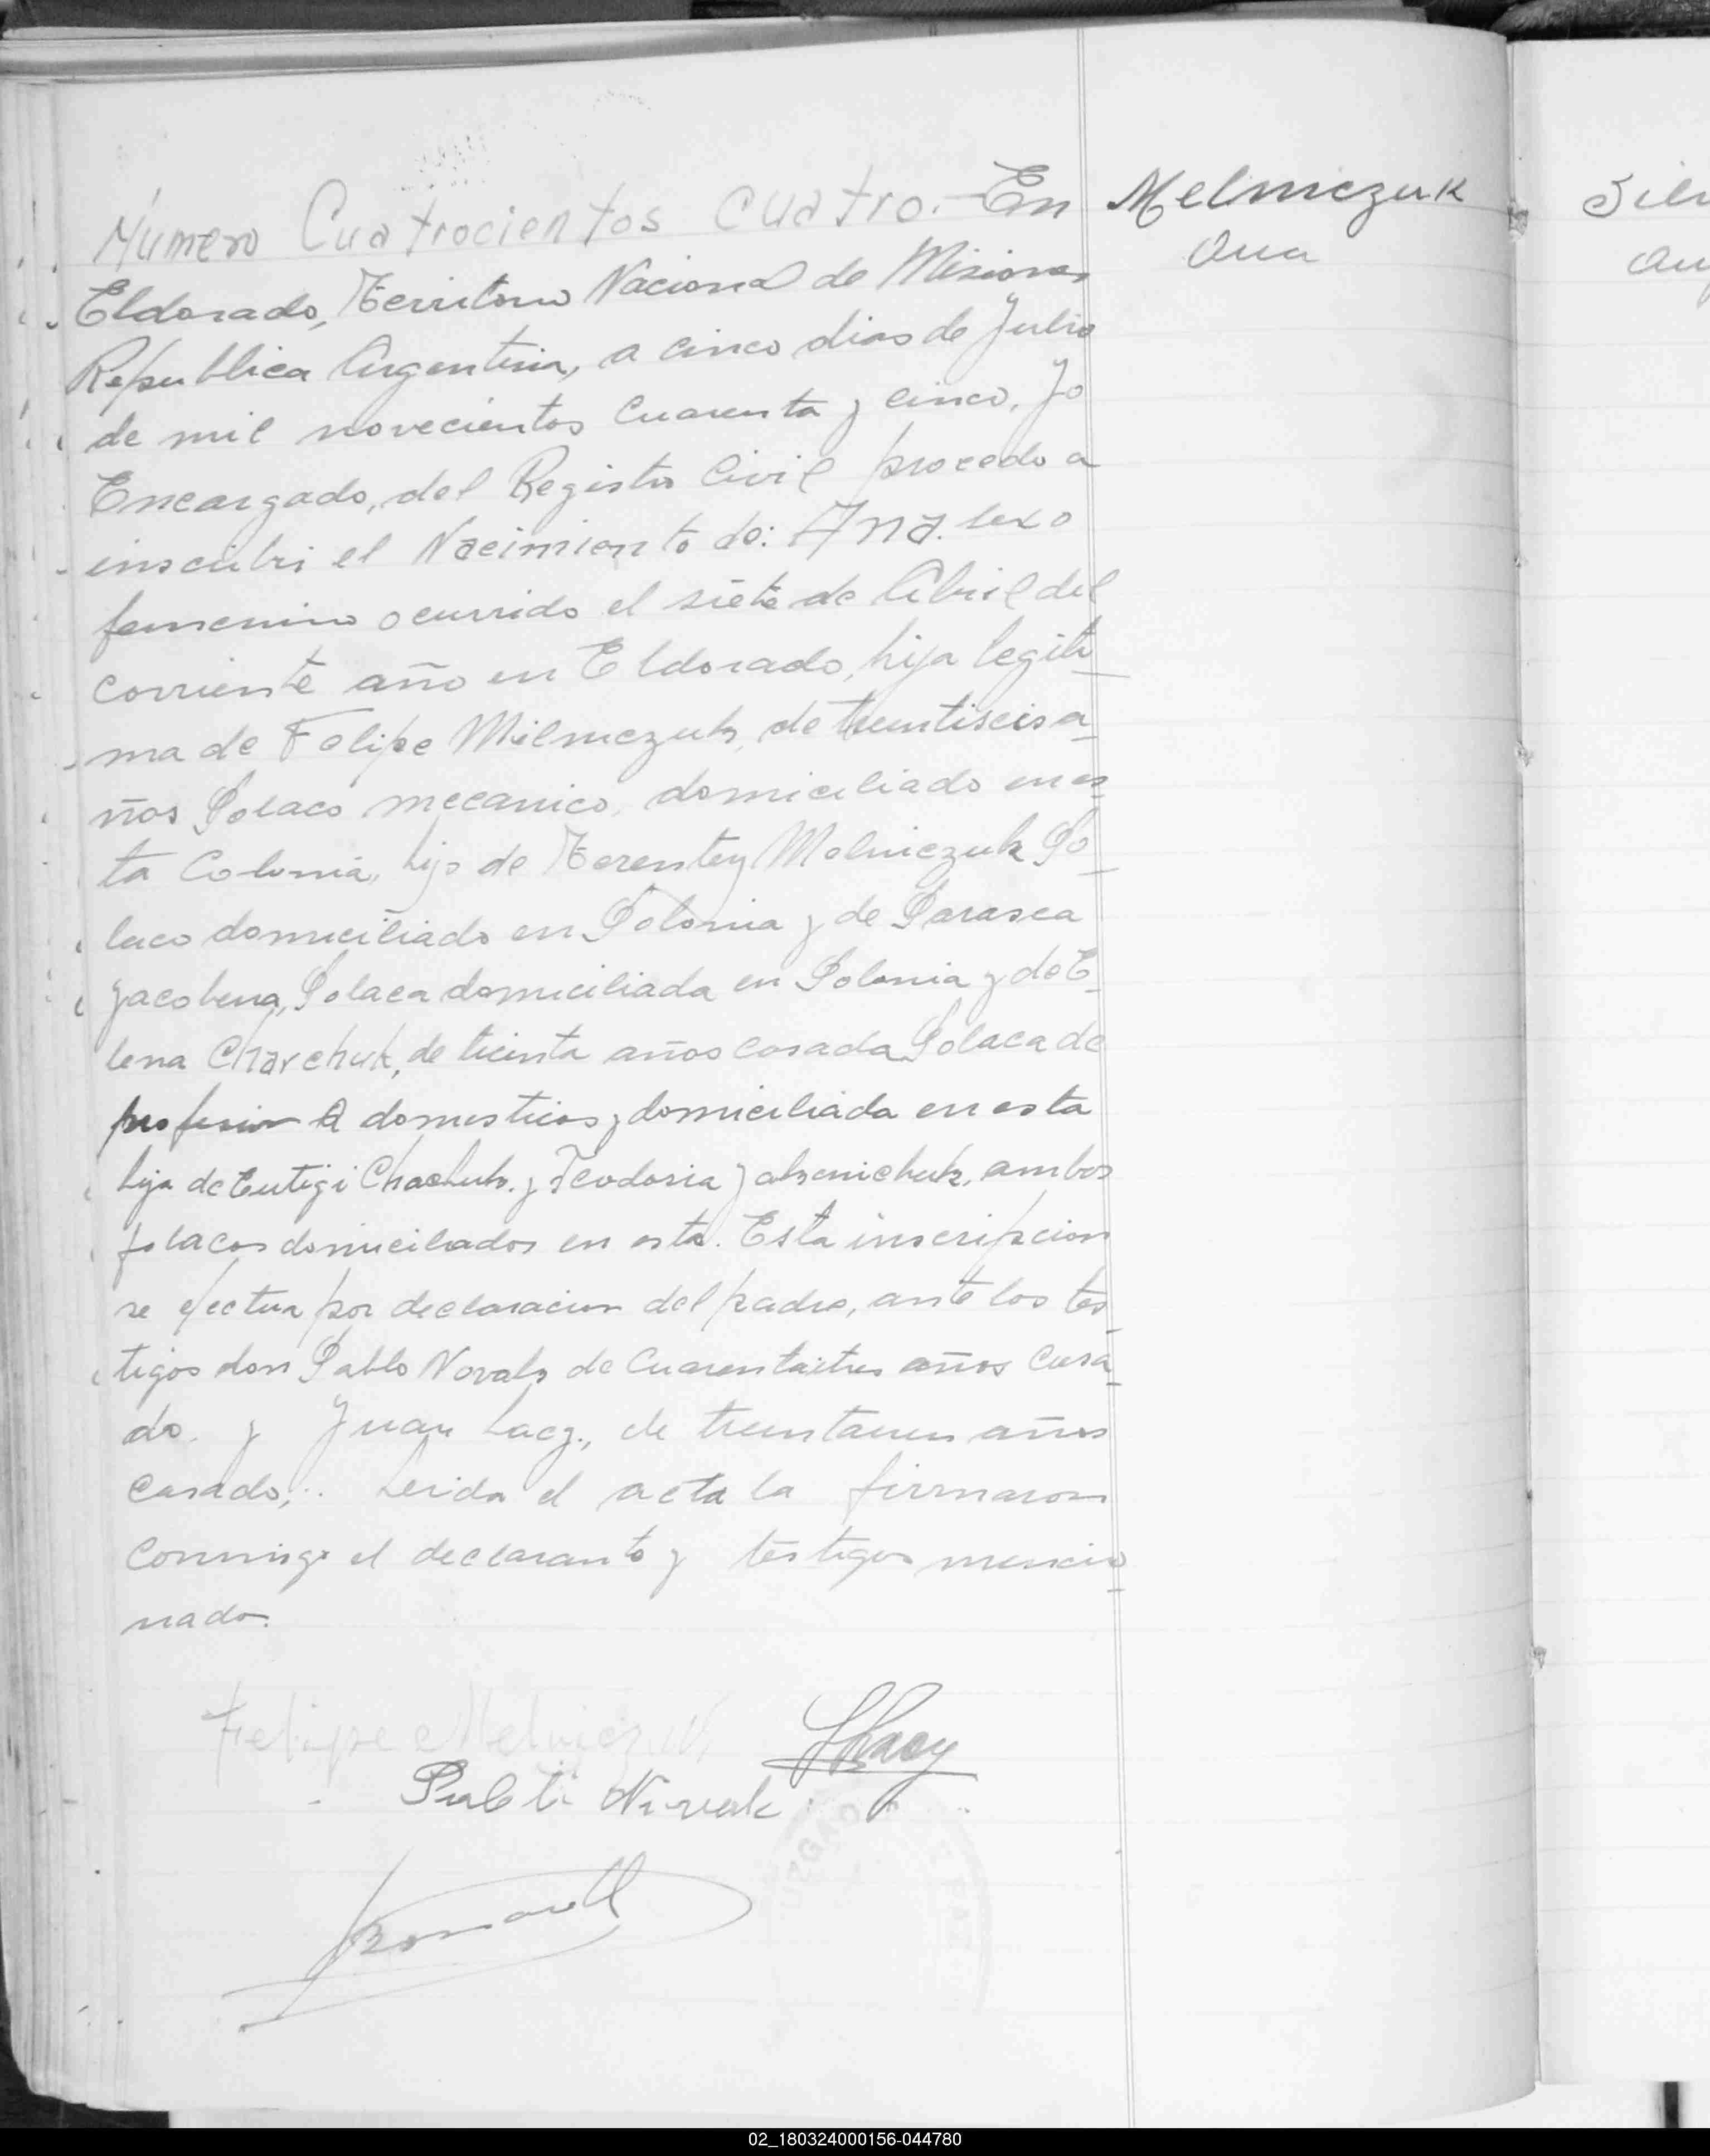 Número Cuatrocientos Cuatro.- En
Eldorado, Territorio Nacional de Misiones
Republica Argentina, a cinco dias de Julio
de mil novecientos Cuarenta y cinco. Yo
Encargado, del Registro Civil procedo a
inscribi el Nacimiento de: Ana. sexo
femenino ocurrido el siete de Abril del
corriente año en Eldorado, hija legiti
ma de Felipe Milniczuk, de treintiseis a
ños Polaco mecanico, domiciliado en es
ta Colonia, hijo de Terentey Melniczuk Po
laco domiciliado en Polonia y de Parasca
Jacobena, Polaca domiciliada en Polonia y de E
lena Charchuk, de treinta años casada Polaca de
profesion Q domesticos y domiciliada en esta
hija de Eutigi Chachuk. y Teodosia Jakenichuk, ambos
polacos domiciliados en esta. Esta inscripcion
se efectua por declaracion del padre, ante los tes
tigos don Pablo Novak de Cuarentaitres años Casa
do. y Juan Lacy., de treintaun años
casado,.. Leida el acta la firmaron
conmigo el declarante y testigos mencio
nado.
Felipe Melniczuk
Nowak
Melniczuk
Ana